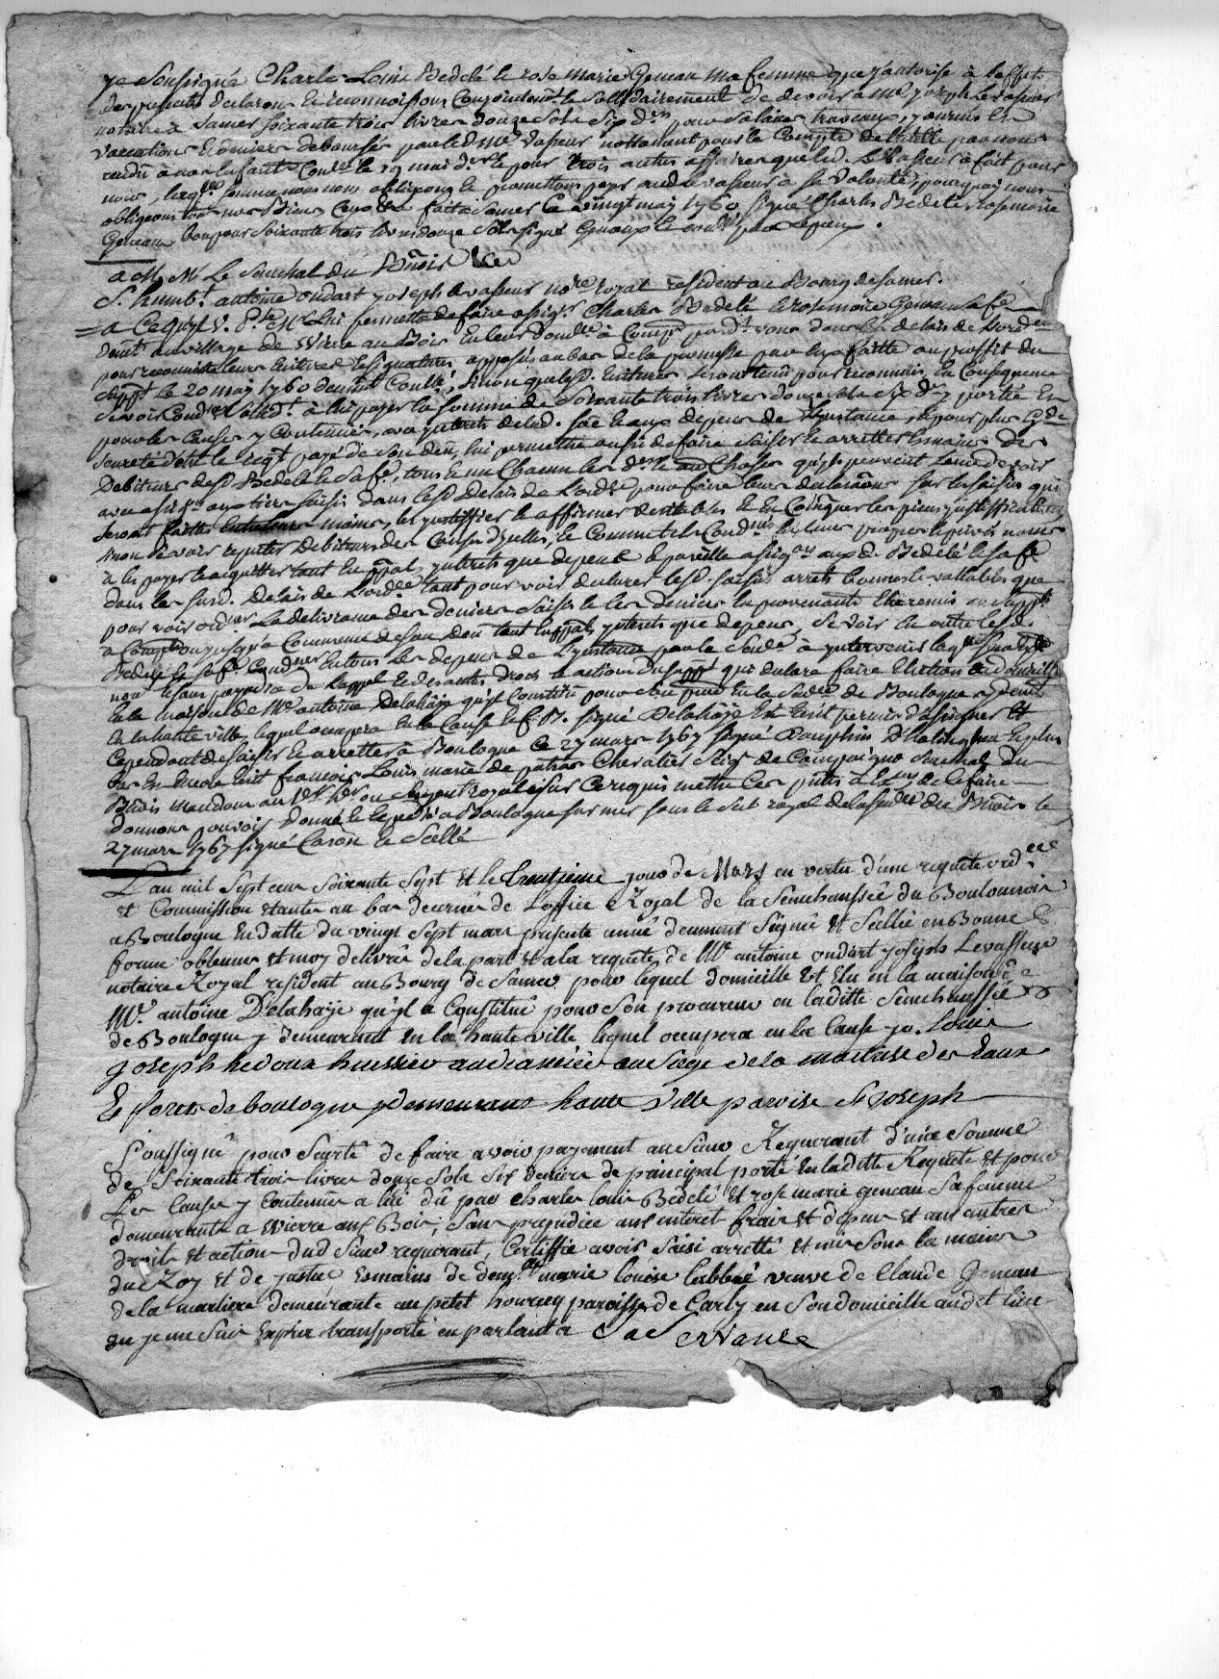 Je Soussigné Charle Louis Bedelé et rose marie Geneau ma femme que j'autorise à l'effet
des presentes declarons et reconnoissons Conjointemt. et Sollidairement de devoir a Me. joseph Levasseur
notaire a Samer soixante trois livres douze sols six drs. pour salaires travaux, journees et
vacations Et deniers deboursés par led. Me. Vasseur nottament pour le Compte de tutelle par nous
rendu à nos Enfants le 19 mai dr. et pour trois autres affaires que led. Levasseur a fait pour
nous, laqle. somme nous nous obligeons et promettons payer aud. Levasseur à sa volonté, pourquoy nous
obligeons tous nos Biens fait a Samer le vingt may 1760 signé Charles Bedelé Rosemarie
Geneau bon pour Soixante trois livres douze sols signé Geneau
a M. M. Le Senechal du Bnois
S. humbt. antoine ondart joseph Levasseur nore. royal resident au Bourg de Samer.
a Ce qu'il v. Me. Lui permettre de faire assigr. Charles Bedelé et Rosemarie Geneau sa fe
demt. au village de Wierre au Bois en leur domle. à Compr. pardt. vous dans les delais de Lorde
pour reconnoistre leurs Ecritures et signatures apposés au bas de la promesse par eux faitte au proffit du
Suppt. le 20 may 1760 sinon que lesd. Ecritures seront tenus pour reconnus, en Consequence
se voir Condr. Solidt. à lui payer la somme de Soixante trois livres douze sols six drs. portée En
pour les Causes y Contenues, aux jnterets de lad. soe. et aux depens de L'jnstance, et pour plus gde
seureté d'etre le supt. payé de son deu, lui permettre aussi de faire saisir et arretter es mains des
Debiteurs desd. Bedelé et sa fe, tous et un Chacun les drs. et autres Choses qu'ils peuvent leur devoir
avec assigon. aux tiers saisis dans lesd. Delais de L'orde pour faire leurs declarations sur les saisies qui
seront faittes entre leurs mains, les justiffier et affirmer veritables et En Communiquer les pieces justifficatives
sinon se voir reputer Debiteurs des Causes d'jcelles, et Comme tels Condnés en leurs propres et privés noms
à les payer et acquitter tant En ppal, jnterets que depens Et pareille assigon. auxd. Bedelé et sa fe
dans les susd. Delais de L'orde tant pour voir declarer lesd. saisies arrets bonnes et vallables que
pour voir ordner. La delivrance des deniers saisis et les deniers en provenants Etre remis au suppt.
a Compte ou jusqu'a Concurrence de son deu tant en ppal, jnterets que depens, se voir En outre lesd.
Bedelé et sa fe Condner. En tous les depens de L'jnstance par la sence. à jntervenir laqle. sera Exée
non et sans prejudice de L'appel Et des autres droits et actions du suppt. qui declare faire Election de domicille
En la maison de Me. antoine Delahaye qu'jl Constitue pour son procr. En la Senée de Boulogne y demt.
En la haute ville, lequel occupera En la Cause Et f. B. signé Delahaye Est Ecrit permis d'assigner Et
Cependant de saisir et arretter à Boulogne Ce 27 mars 1767 signé Dauphin D'halinghen Et plus
bas Est Encore Ecrit francois Louis marie de patras Chevalier Sgr. de Campaigne Senechal du
Bnois Mandons au 1er. hr. ou sergent royal sur Ce requis mettre Ces ptes. à Exon. de Ce faire
Donnons pouvoir Donné et Expedié a Boulogne sur mer sous le scel royal de la Senée du Bnois le
27 mars 1767 signé Caron et Scellé
L'an mil Sept cens Soixante Sept Et le trentieme jour de Mars en vertu d'une requete ordce
et Commission etante au bas decernée de L'office Royal de la Senechaussée du Boulonnois
a Boulogne En datte du vingt Sept mars presente année deument Signé et Scellée en Bonne &
forme obtenue Et moy delivrée de la part et a la requete de Me. antoine ondart joseph Levasseur
notaire Royal resident au Bourg de Samer pour lequel domicille Est Elu en la maison de
Me. antoine Delahaye qu'jl a Constitué pour Son procureur en laditte Senechaussée
de Boulogne y demeurant en la haute ville lequel occupera en la Cause je. Louis
joseph hedoux huissier audiancier au Siege de la maitrise des Eaux
Et forets de boulogne y demeurant haute ville paroise St. Joseph
Soussigné pour Sureté de faire avoir payement au Sieur Requerant d'une Somme
De Soixante trois livres douze Sols Six deniers de principal porté en laditte Requete Et pour
Les Causes y Contenues a lui dû par Charles louis Bedelé Et rose marie geneau Sa femme
demeurants a Wierre aux Bois, Sans prejudice aux interet frais Et depens Et aux autres
droits Et action dud. Sieur requerant, Certiffie avoir Saisi arretté Et mis Sous la main
du Roy Et de justice Es mains de demlle. marie louise labbaé veuve de Claude Geneau
de la marliere demeurante au petit hourecq paroisse de Carly en Son domicille audit lieu
ou je me Suis Exprès transporté en parlant a Sa Servante